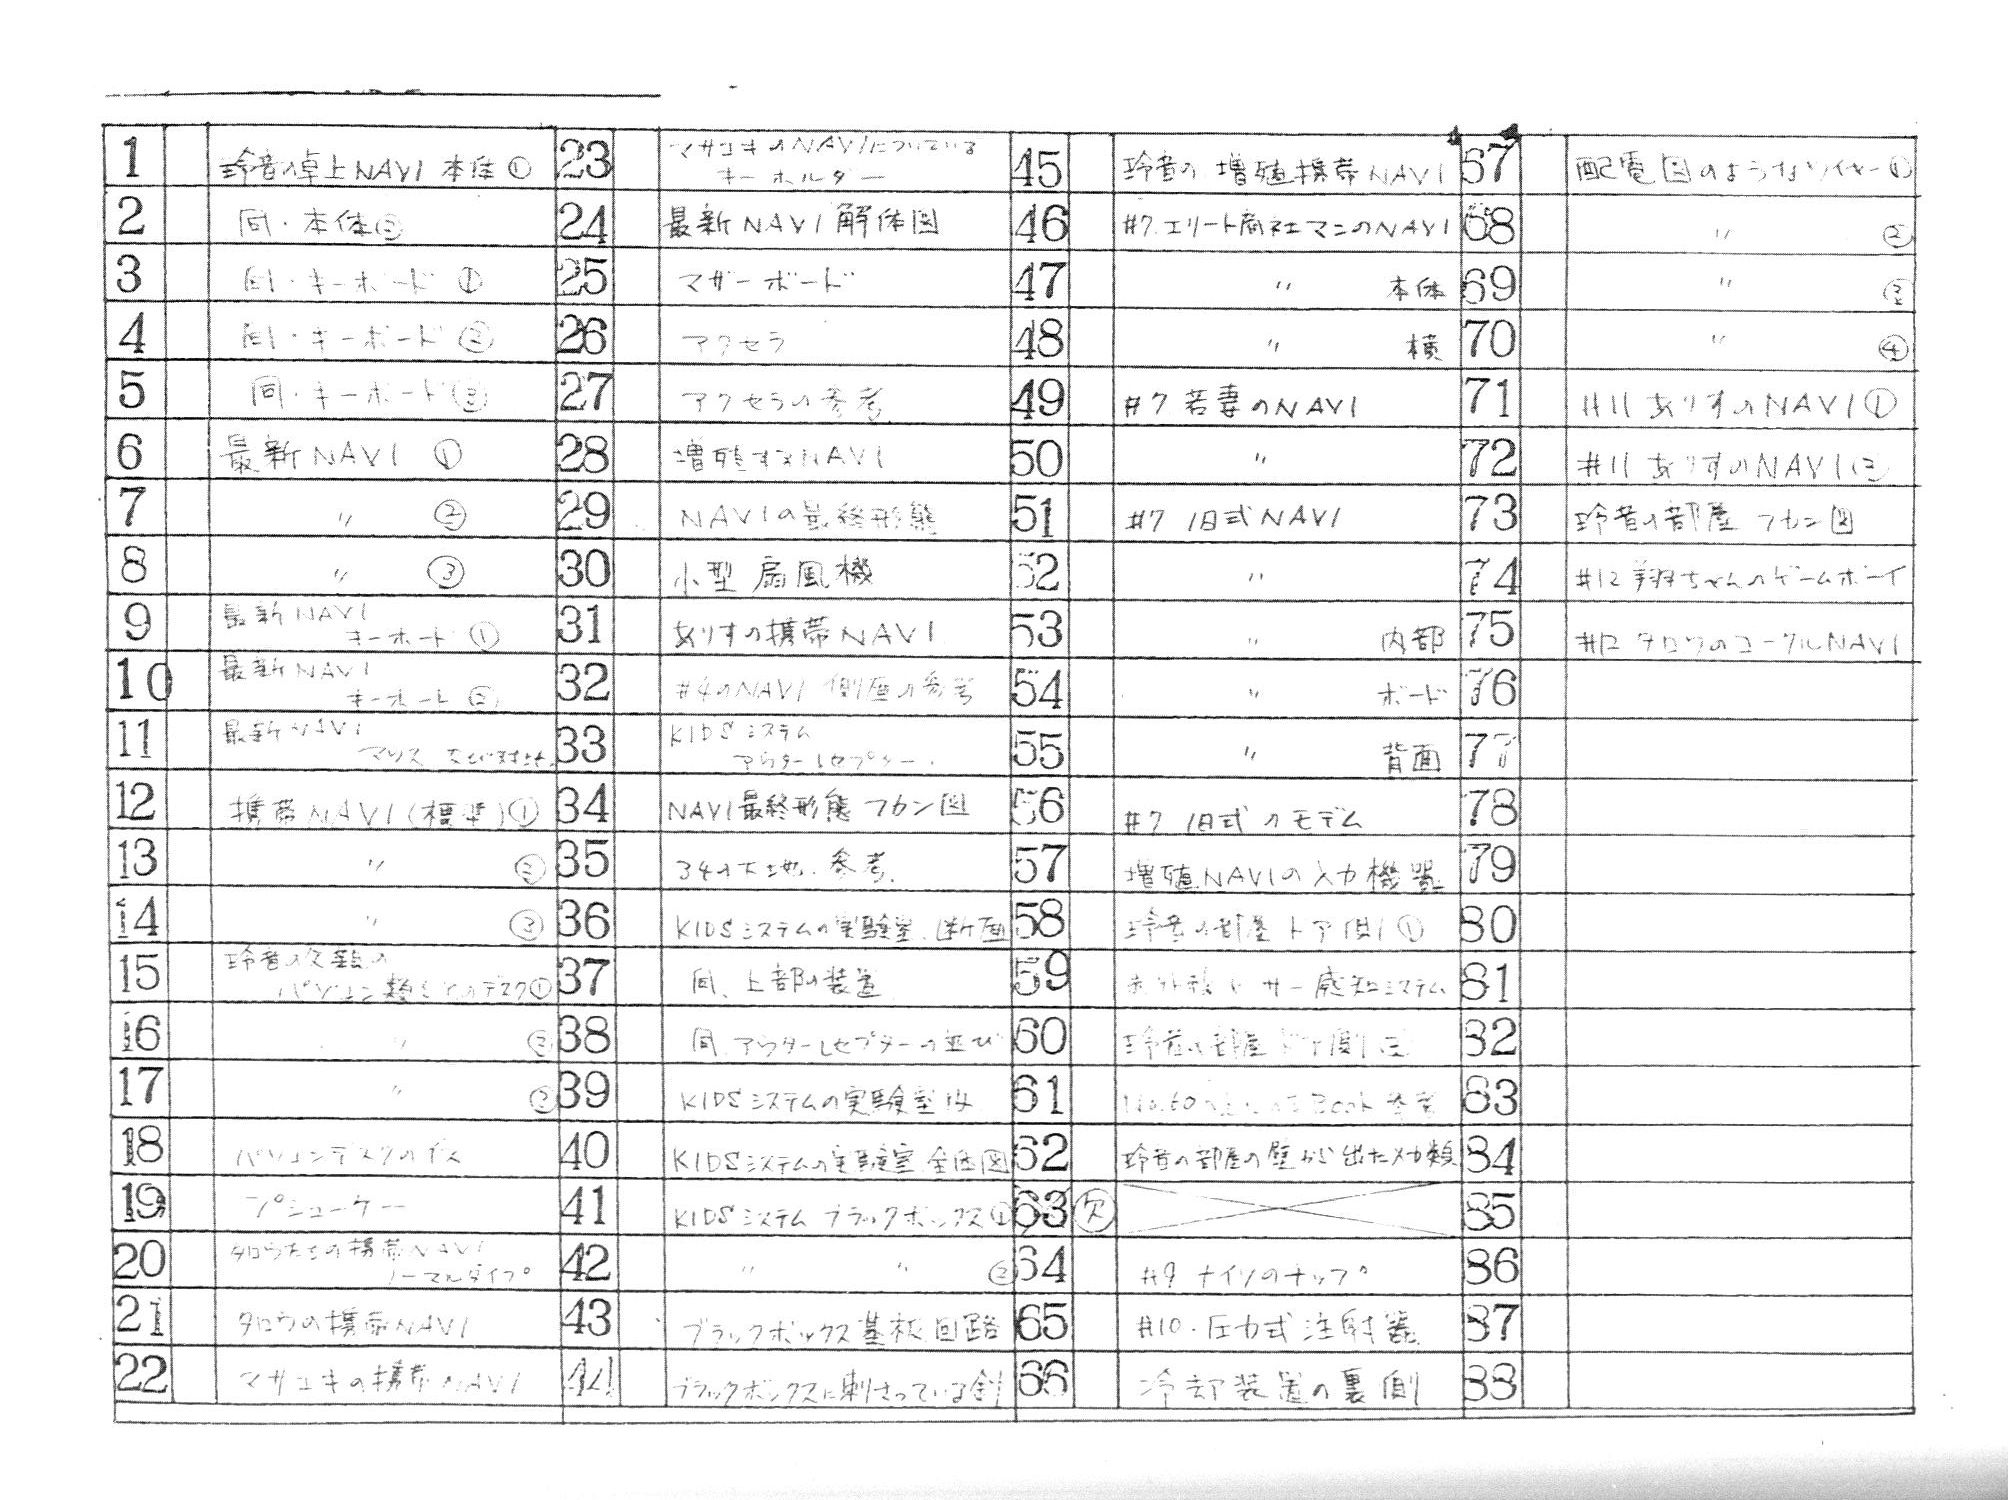 1 玲音の卓上NAVI 本体①
2 同・本体②
3 同・キーボード ①
4 同・キーボード ②
5 同・キーボード ③
6 最新NAVI ①
7 〃 ②
8 〃 ③
9 最新NAVI
キーボード ①
10 最新NAVI
キーボード ②
11 最新NAVI
マウス
12 携帯NAVI(標準)①
13 〃 ②
14 〃 ③
15 玲音の父親の
パソコン類とそのデスク①
16 〃 ②
17 〃
18 パソコンデスクのイス
19 プシューケー
20 タロウたちの携帯NAVI
ノーマルタイプ
21 タロウの携帯NAVI
22 マサユキの携帯NAVI
23 マサユキのNAVIについている
キーホルダー
24 最新NAVI解体図
25 マザーボード
26 アクセラ
27 アクセラの参考
28 増殖するNAVI
29 NAVIの最終形態
30 小型扇風機
31 ありすの携帯NAVI
32 #4のNAVI 側面の参考
33 KIDSシステム
アウターレセプター
34 NAVI最終形態 フカン図
35 34の下地・参考
36 KIDSシステムの実験室、断面
37 同、上部の装置
38 同、アウターレセプターの並び
39 KIDSシステムの実験室
40 KIDSシステムの実験室 全体図
41 KIDSシステム ブラックボックス①
42 〃 〃 ②
43 ブラックボックス基板回路
44 ブラックボックスに刺さっている針
45 玲音の増殖携帯NAVI
46 #7 エリート商社マンのNAVI
47 〃 本体
48 〃 横
49 #7 若妻のNAVI
50 〃
51 #7 旧式NAVI
52 〃
53 〃 内部
54 〃 ボード
55 〃 背面
56 #7 旧式のモデム
57 増殖NAVIの入力機器
58 玲音の部屋 ドア側①
59 赤外線レーザー感知システム
60 玲音の部屋 ドア側②
61 No.60 Book 参考
62 玲音の部屋の壁から出たメカ類
63 欠
64 #9 ナイツのチップ
65 #10・圧力式注射器
66 冷却装置の裏側
67 配電図のようなワイヤー①
68 〃 ②
69 〃 ③
70 〃 ④
71 #11 ありすのNAVI①
72 #11 ありすのNAVI②
73 玲音の部屋 フカン図
74 #12 翔ちゃんのゲームボーイ
75 #12 タロウのゴーグルNAVI
76
77
78
79
80
81
82
83
84
85
86
87
88